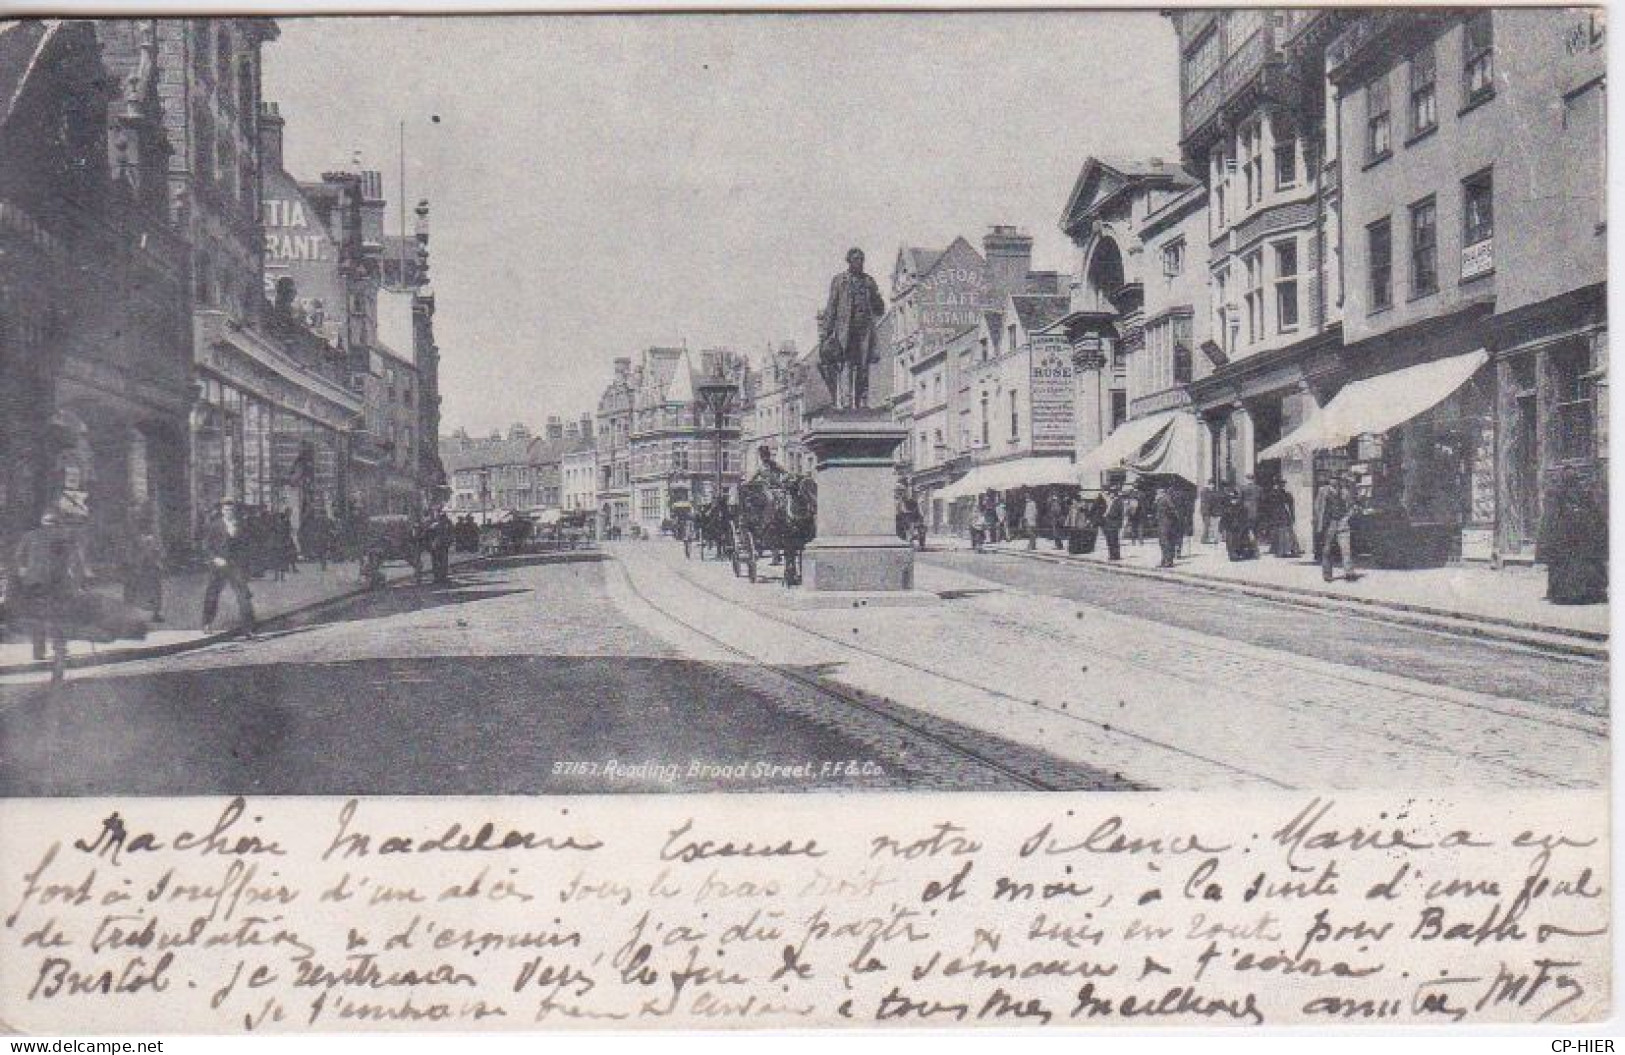 TIA
RANT.
VICTORIA
CAFE
RESTAURA
ROSE
37157. Reading, Broad Street, F.F. & Co.
Ma chère Madeleine Excuse notre silence : Marie a eu
fort à souffrir d'un abcès sous le bras droit, et moi, à la suite d'une foule
de tribulations & d'ennuis, j'ai dû partir & suis en route pour Bath &
Bristol. je rentrerai vers la fin de la semaine & t'écrirai.
Je t'embrasse bien & à tous mes meilleures amitiés
CP-HIER